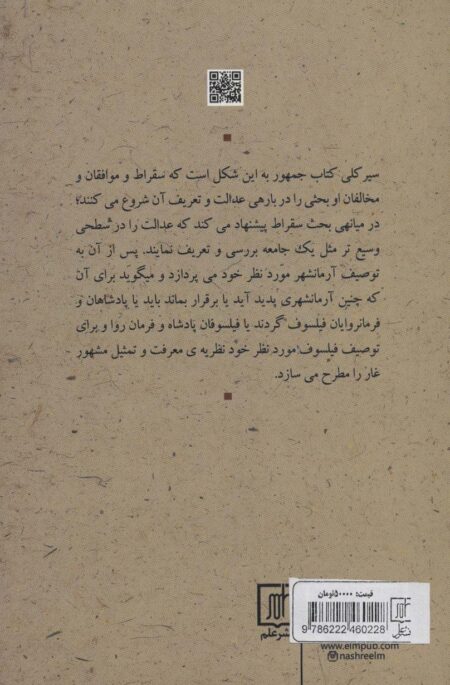 سیر کلی کتاب جمهور به این شکل است که سقراط و موافقان و
مخالفان او بحثی را در باره‌ی عدالت و تعریف آن شروع می کنند؛
در میانه‍ی بحث سقراط پیشنهاد می کند که عدالت را در سطحی
وسیع تر مثل یک جامعه بررسی و تعریف نمایند. پس از آن به
توصیف آرمانشهر مورد نظر خود می پردازد و میگوید برای آن
که چنین آرمانشهری پدید آید یا برقرار بماند باید یا پادشاهان و
فرمانروایان فیلسوف گردند یا فیلسوفان پادشاه و فرمان روا و برای
توصیف فیلسوف مورد نظر خود نظریه ی معرفت و تمثیل مشهور
غار را مطرح می سازد.
قیمت: ۵۰۰۰۰تومان
9 786222 460228
نشرعلم
www.elmpub.com
@nashreelm